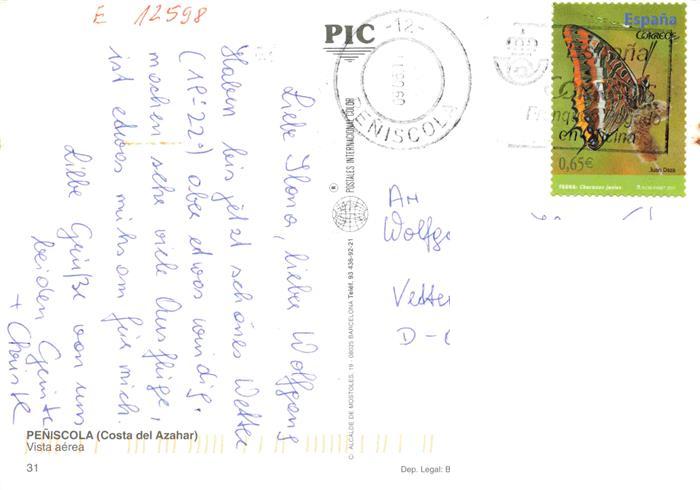 E 12598
PIC
Liebe Ilona, lieber Wolfgang
Haben bis jetzt schönes Wetter
(18-22°) aber etwas windig.
machen sehr viele Ausflüge,
ist etwas mühsam für mich.
Liebe Grüße von uns
beiden
+
PEÑISCOLA (Costa del Azahar)
Vista aérea
31
® POSTALES INTERNACIONAL COLOR
C- ALCALDE DE MOSTOLES, 19 - 08025 BARCELONA Teléf. 93 436-92-21
Dep. Legal: B
-12-
PEÑISCOLA
España
CORREOS
0,65€
Juan Daza
FAUNA: Charaxes jasius
España
en oficina
An
Wolfg
Vetter
D-